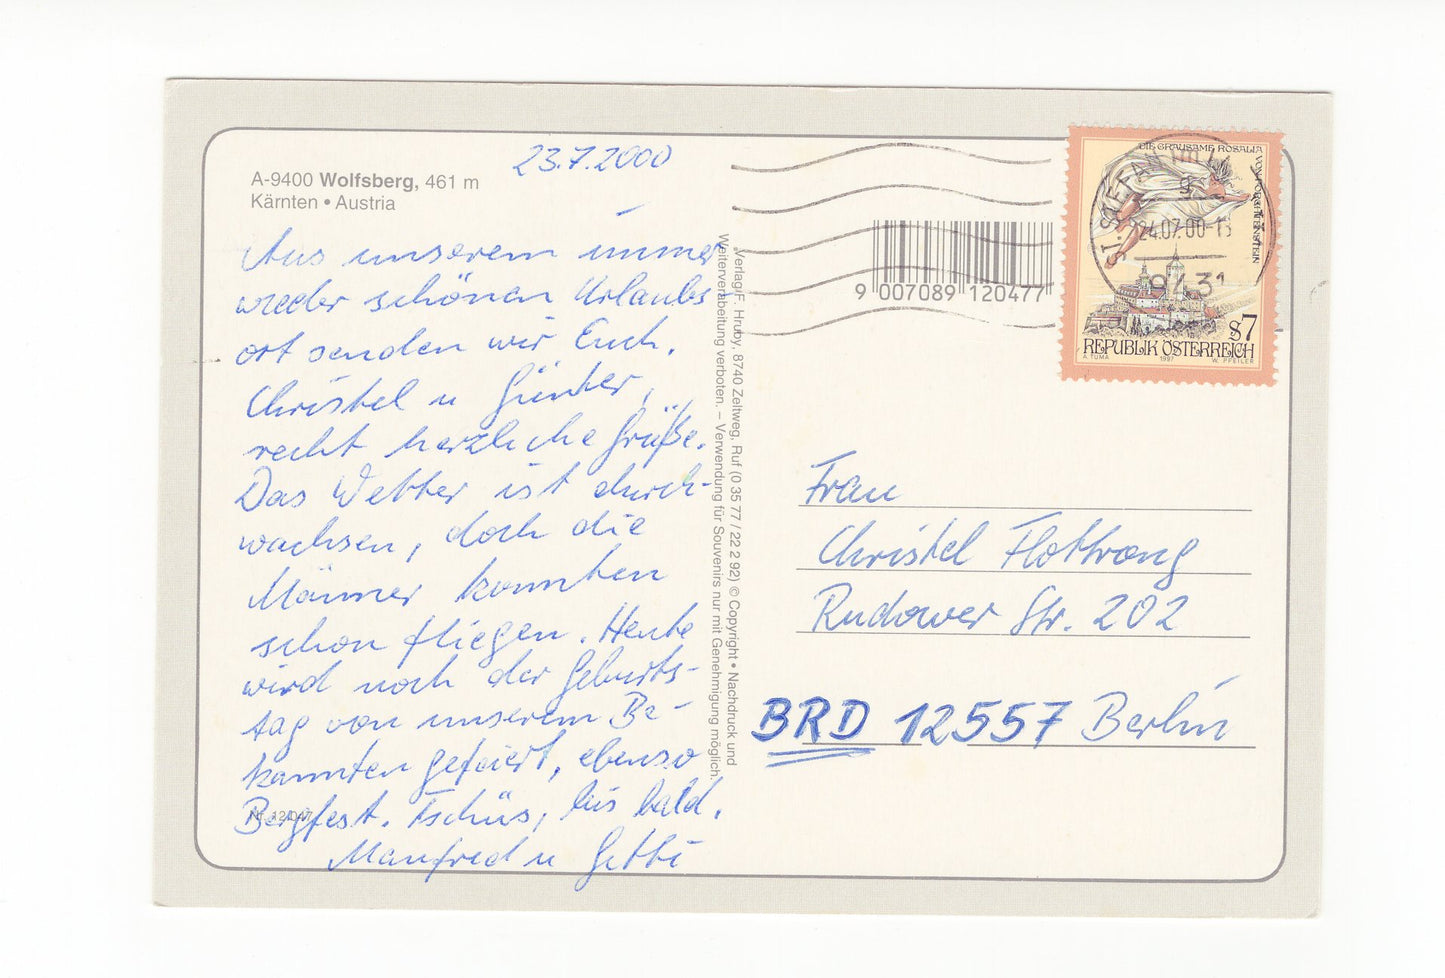 23.7.2000
A-9400 Wolfsberg, 461 m
Kärnten • Austria
Aus unserem immer
wieder schönen Urlaubs
ort senden wir Euch,
Christel u Günter,
recht herzliche Grüße.
Das Wetter ist durch-
wachsen, doch die
Männer konnten
schon fliegen. Heute
wird noch der Geburts-
tag von unserem Be-
kannten gefeiert, ebenso
Bergfest. Tschüs, bis bald.
Manfred u Gitti
Nr. 12/047
„Verlag F. Hruby, 8740 Zeltweg, Ruf (0 35 77 / 22 2 92) © Copyright • Nachdruck und
Weiterverarbeitung verboten. – Verwendung für Souvenirs nur mit Genehmigung möglich.
9 007089 120477
DIE GRAUSAME ROSALIA
VON FORCHTENSTEIN
S7
REPUBLIK ÖSTERREICH
A. TUMA 1997 W. PFEILER
g
24.07.00-13
9431
Frau
Christel
Rudower Str. 202
BRD 12557 Berlin